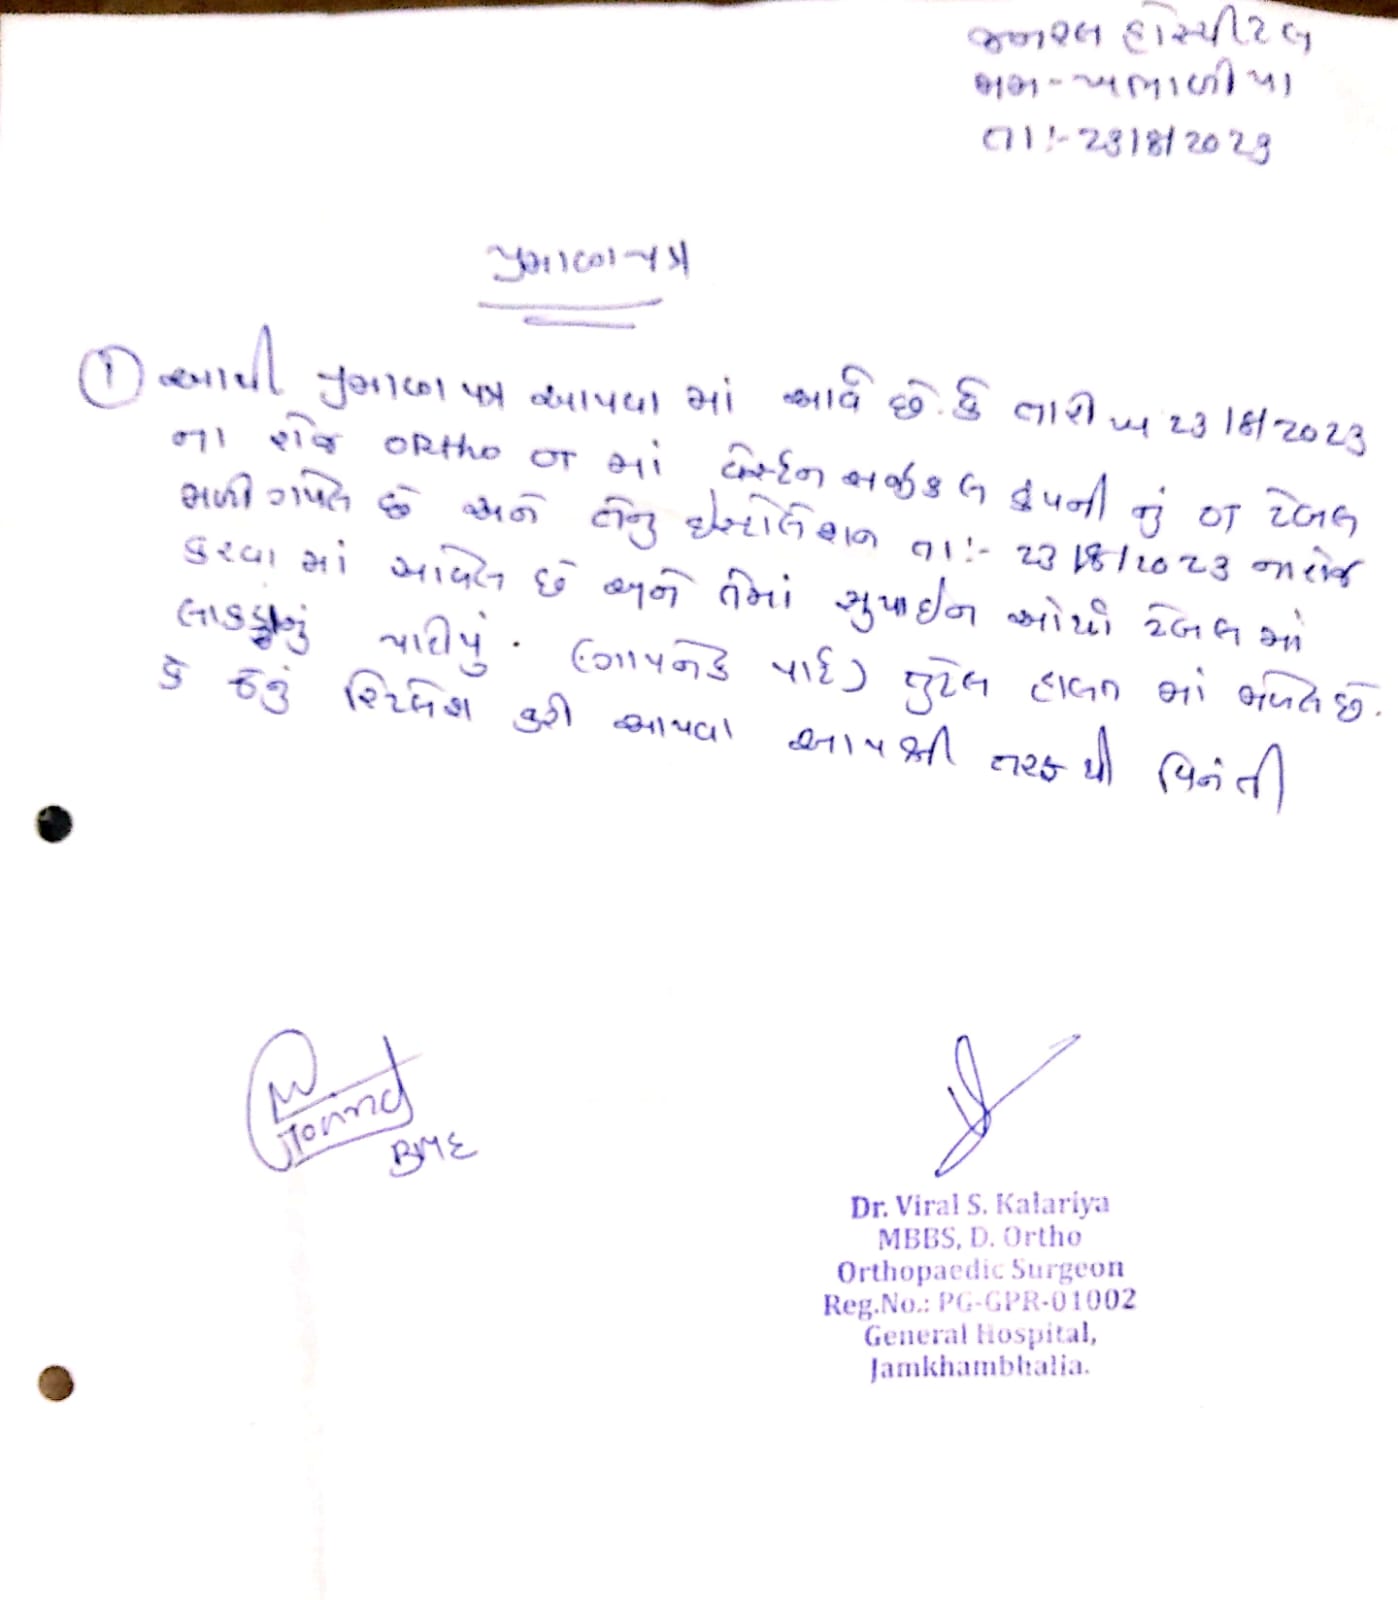 જનરલ હોસ્પીટલ
જામ-ખંભાળીયા
તા:- 23/8/2023
પ્રમાણપત્ર
① આથી પ્રમાણપત્ર આપવા માં આવે છે. કે તારીખ 23/8/2023
ના રોજ ORtho OT માં સર્જીકલ કંપની નું OT ટેબલ
મળી ગયેલ છે અને તેનું ઇન્સ્ટોલેશન તા:- 23/8/2023 ના રોજ
કરવા માં આવેલ છે અને તેમાં ઓર્થો ટેબલ માં
લાકડાનું પાટીયું. (પાર્ટ) તુટેલ હાલત માં મળેલ છે.
કે જેનું રિપ્લેસ કરી આપવા આપશ્રી તરફ થી વિનંતી
BME
Dr. Viral S. Kalariya
MBBS, D. Ortho
Orthopaedic Surgeon
Reg.No.: PG-GPR-01002
General Hospital,
Jamkhambhalia.